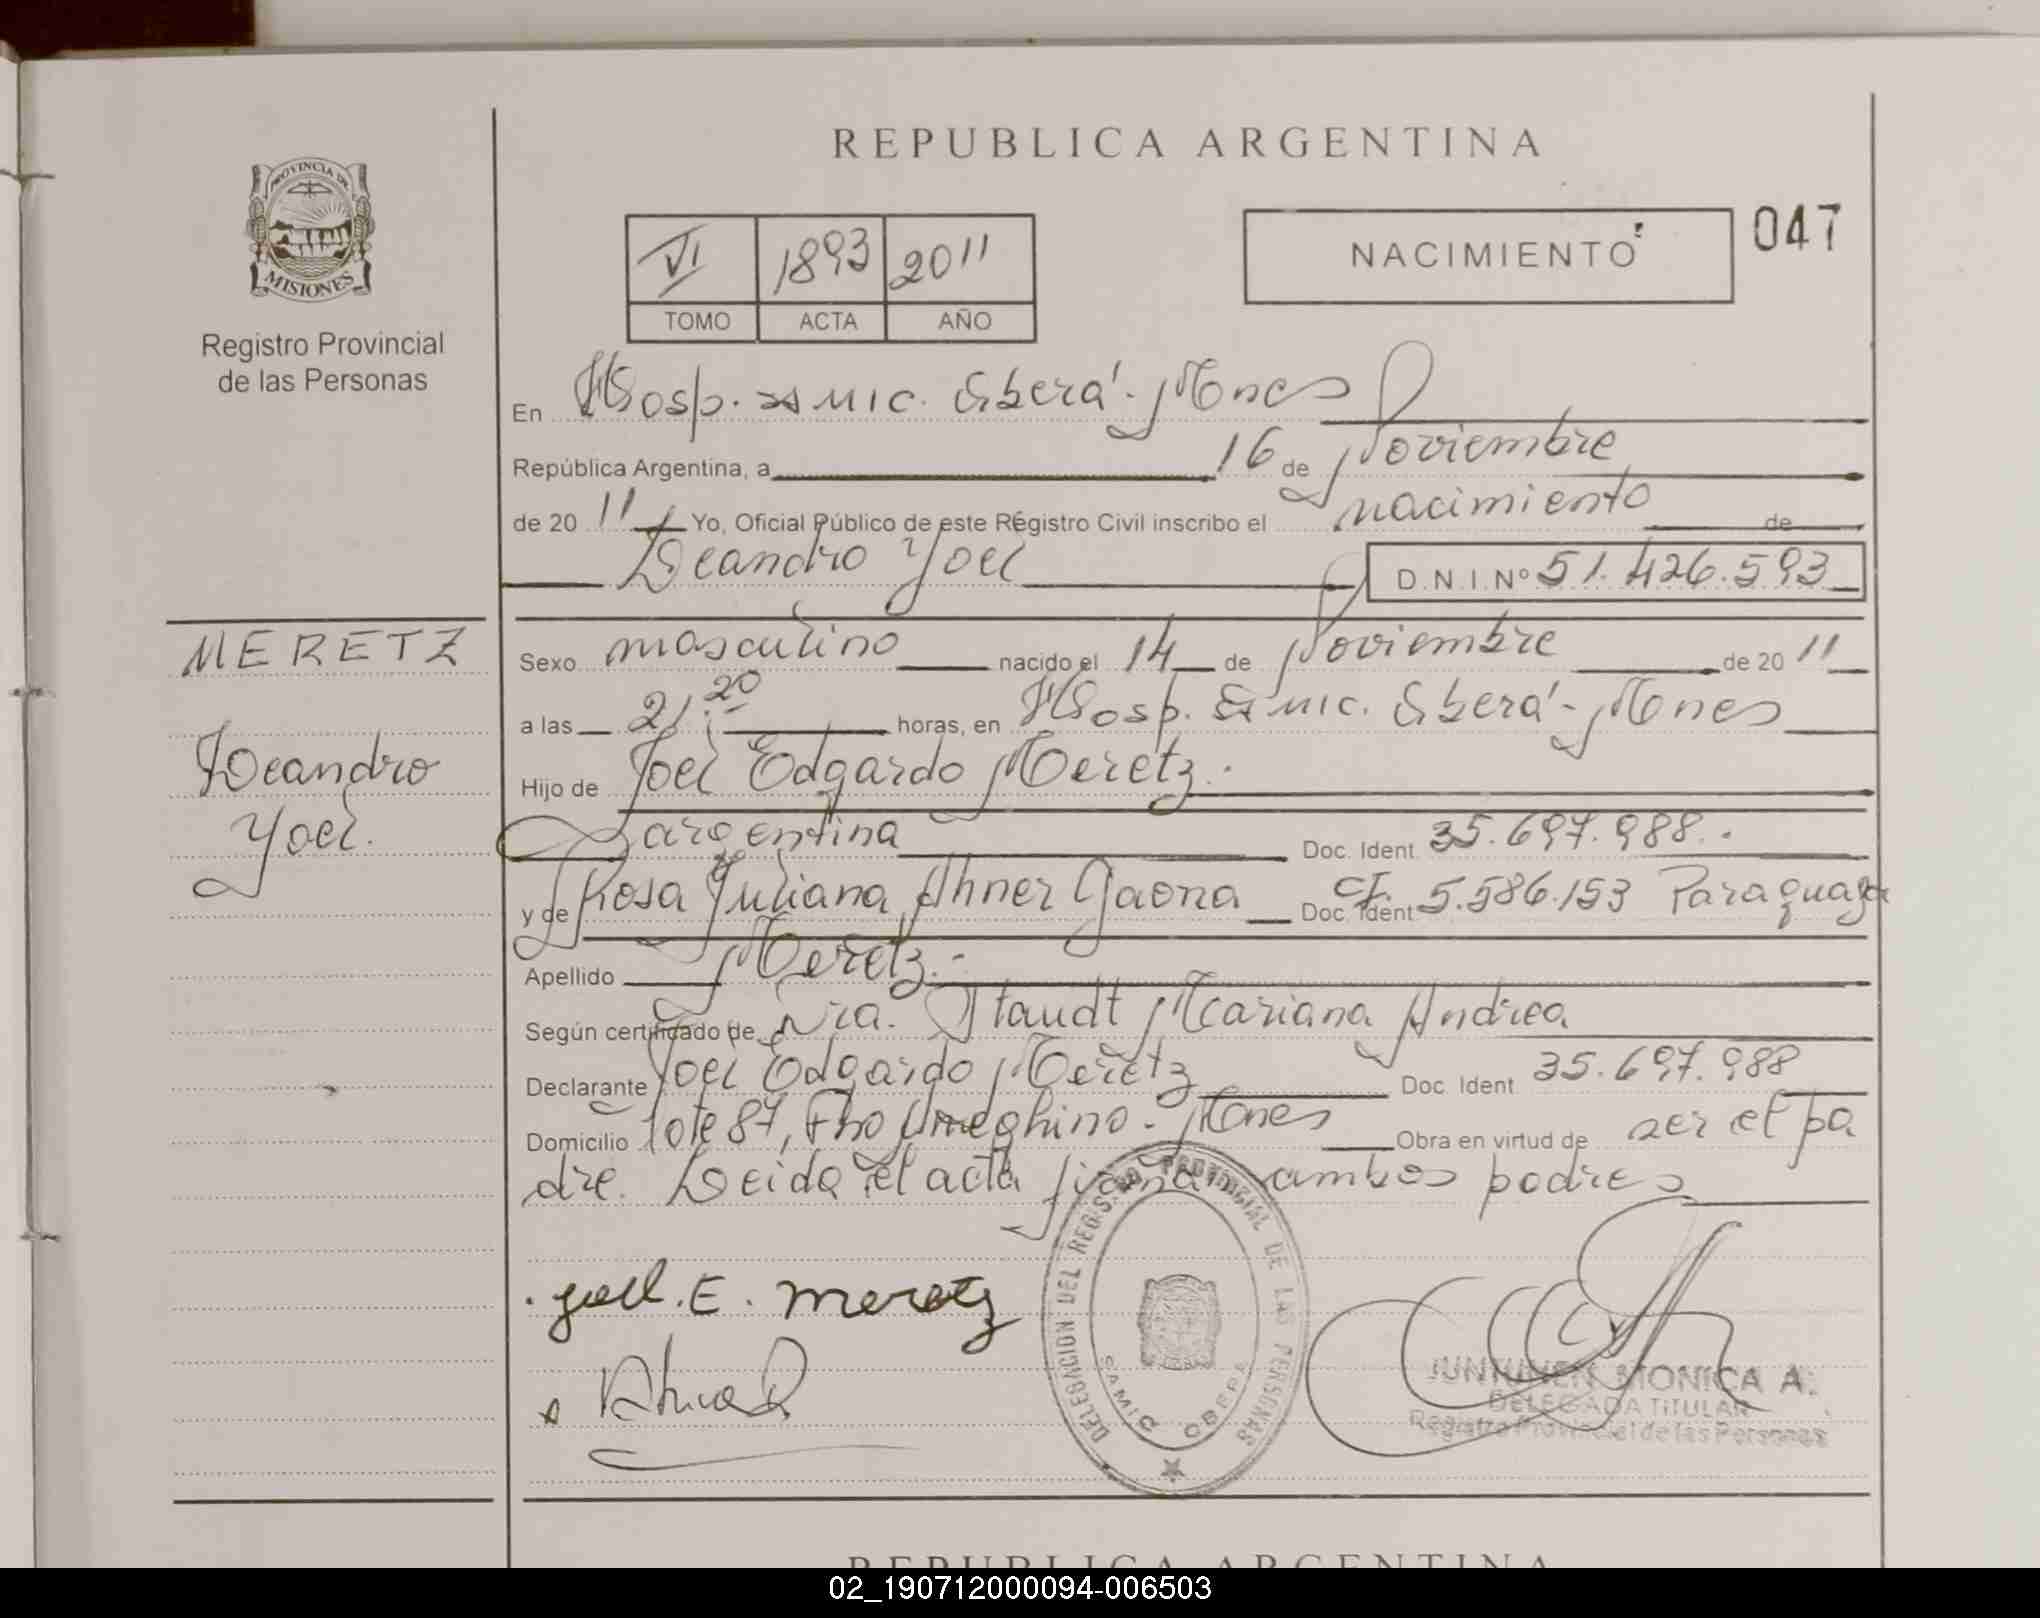 REPUBLICA ARGENTINA
PROVINCIA DE
MISIONES
Registro Provincial
de las Personas
VI 1893 2011
TOMO ACTA AÑO
NACIMIENTO
047
En Hosp. Oberá - Mnes
República Argentina, a 16 de Noviembre
de 20 11 Yo, Oficial Público de este Registro Civil inscribo el nacimiento de
Leandro Yoel D.N.I. Nº 51.426.593
MERETZ
Leandro
Yoel.
Sexo masculino nacido el 14 de Noviembre de 20 11
a las 21:20 horas, en Hosp. Oberá - Mnes
Hijo de Joel Edgardo Meretz.
argentina Doc. Ident. 35.697.988.
y de Rosa Juliana Ahner Gaona Doc. Ident CI. 5.586.153 Paraguaya
Apellido Meretz.-
Según certificado de Dra. Staudt Mariana Andrea
Declarante Joel Edgardo Meretz Doc. Ident 35.697.988
Domicilio lote 87, Fno Ameghino - Mnes Obra en virtud de ser el pa
dre. Leida el acta firman ambos padres
Joel. E. meretz
DELEGACION DEL REGISTRO PROVINCIAL DE LAS PERSONAS
SAMIC OBERA
JUNTUNEN MONICA A.
DELEGADA TITULAR
Registro Provincial de las Personas
REPUBLICA ARGENTINA
02_190712000094-006503